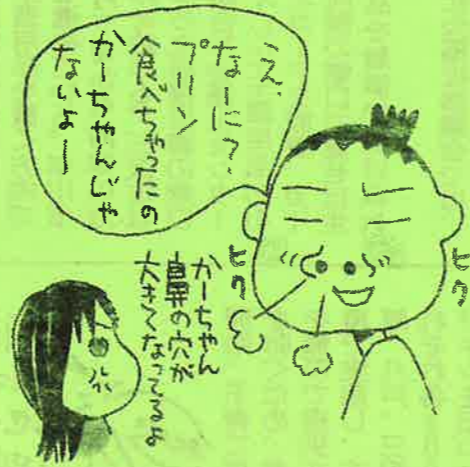 え、
なーに？
プリン
食べちゃったの
かーちゃんじゃ
ないよー
ヒク
ヒク
かーちゃん
鼻の穴が
大きくなってるよ